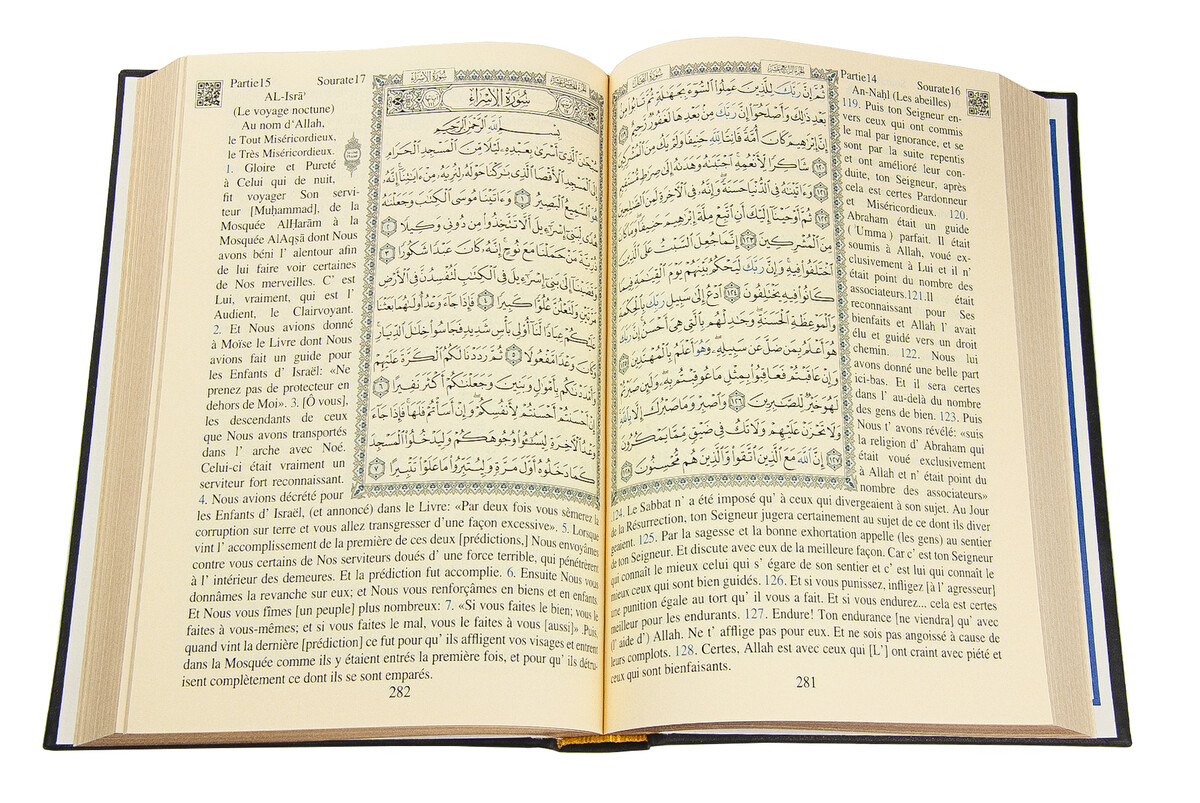 Partie14 Sourate16
An-Naḥl (Les abeilles)
119. Puis ton Seigneur en-
vers ceux qui ont commis
le mal par ignorance, et se
sont par la suite repentis
et ont amélioré leur con-
duite, ton Seigneur, après
cela est certes Pardonneur
et Miséricordieux. 120.
Abraham était un guide
('Umma) parfait. Il était
soumis à Allah, voué ex-
clusivement à Lui et il n'
était point du nombre des
associateurs.121.Il était
reconnaissant pour Ses
bienfaits et Allah l' avait
élu et guidé vers un droit
chemin. 122. Nous lui
avons donné une belle part
ici-bas. Et il sera certes
dans l' au-delà du nombre
des gens de bien. 123. Puis
Nous t' avons révélé: «suis
la religion d' Abraham qui
était voué exclusivement
à Allah et n' était point du
nombre des associateurs»
سُورَةُ النَّحْلِ
ثُمَّ إِنَّ رَبَّكَ لِلَّذِينَ عَمِلُوا۟ ٱلسُّوٓءَ بِجَهَٰلَةٍ ثُمَّ تَابُوا۟ مِنۢ
بَعْدِ ذَٰلِكَ وَأَصْلَحُوٓا۟ إِنَّ رَبَّكَ مِنۢ بَعْدِهَا لَغَفُورٌ رَّحِيمٌ ١١٩
إِنَّ إِبْرَٰهِيمَ كَانَ أُمَّةً قَانِتًا لِّلَّهِ حَنِيفًا وَلَمْ يَكُ مِنَ ٱلْمُشْرِكِينَ
١٢٠ شَاكِرًا لِّأَنْعُمِهِ ٱجْتَبَىٰهُ وَهَدَىٰهُ إِلَىٰ صِرَٰطٍ مُّسْتَقِيمٍ
١٢١ وَءَاتَيْنَٰهُ فِى ٱلدُّنْيَا حَسَنَةً وَإِنَّهُۥ فِى ٱلْءَاخِرَةِ لَمِنَ ٱلصَّٰلِحِينَ
١٢٢ ثُمَّ أَوْحَيْنَآ إِلَيْكَ أَنِ ٱتَّبِعْ مِلَّةَ إِبْرَٰهِيمَ حَنِيفًا وَمَا كَانَ
مِنَ ٱلْمُشْرِكِينَ ١٢٣ إِنَّمَا جُعِلَ ٱلسَّبْتُ عَلَى ٱلَّذِينَ
ٱخْتَلَفُوا۟ فِيهِ وَإِنَّ رَبَّكَ لَيَحْكُمُ بَيْنَهُمْ يَوْمَ ٱلْقِيَٰمَةِ فِيمَا
كَانُوا۟ فِيهِ يَخْتَلِفُونَ ١٢٤ ٱدْعُ إِلَىٰ سَبِيلِ رَبِّكَ بِٱلْحِكْمَةِ
وَٱلْمَوْعِظَةِ ٱلْحَسَنَةِ وَجَٰدِلْهُم بِٱلَّتِى هِىَ أَحْسَنُ إِنَّ رَبَّكَ
هُوَ أَعْلَمُ بِمَن ضَلَّ عَن سَبِيلِهِۦ وَهُوَ أَعْلَمُ بِٱلْمُهْتَدِينَ ١٢٥
وَإِنْ عَاقَبْتُمْ فَعَاقِبُوا۟ بِمِثْلِ مَا عُوقِبْتُم بِهِۦ وَلَئِن صَبَرْتُمْ
لَهُوَ خَيْرٌ لِّلصَّٰبِرِينَ ١٢٦ وَٱصْبِرْ وَمَا صَبْرُكَ إِلَّا بِٱللَّهِ
وَلَا تَحْزَنْ عَلَيْهِمْ وَلَا تَكُ فِى ضَيْقٍ مِّمَّا يَمْكُرُونَ
١٢٧ إِنَّ ٱللَّهَ مَعَ ٱلَّذِينَ ٱتَّقَوا۟ وَّٱلَّذِينَ هُم مُّحْسِنُونَ ١٢٨
124. Le Sabbat n' a été imposé qu' à ceux qui divergeaient à son sujet. Au Jour
de la Résurrection, ton Seigneur jugera certainement au sujet de ce dont ils diver
geaient. 125. Par la sagesse et la bonne exhortation appelle (les gens) au sentier
de ton Seigneur. Et discute avec eux de la meilleure façon. Car c' est ton Seigneur
qui connaît le mieux celui qui s' égare de son sentier et c' est lui qui connaît le
mieux ceux qui sont bien guidés. 126. Et si vous punissez, infligez [à l' agresseur]
une punition égale au tort qu' il vous a fait. Et si vous endurez... cela est certes
meilleur pour les endurants. 127. Endure! Ton endurance [ne viendra] qu' avec
(l' aide d') Allah. Ne t' afflige pas pour eux. Et ne sois pas angoissé à cause de
leurs complots. 128. Certes, Allah est avec ceux qui [L'] ont craint avec piété et
ceux qui sont bienfaisants.
281
Partie15 Sourate17
AL-Isrā'
(Le voyage nocture)
Au nom d'Allah,
le Tout Miséricordieux.
le Très Miséricordieux.
1. Gloire et Pureté
à Celui qui de nuit,
fit voyager Son servi-
teur [Muḥammad], de la
Mosquée AlḤarām à la
Mosquée AlAqṣā dont Nous
avons béni l' alentour afin
de lui faire voir certaines
de Nos merveilles. C' est
Lui, vraiment, qui est l'
Audient, le Clairvoyant.
2. Et Nous avions donné
à Moïse le Livre dont Nous
avions fait un guide pour
les Enfants d' Israël: «Ne
prenez pas de protecteur en
dehors de Moi». 3. [Ô vous],
les descendants de ceux
que Nous avons transportés
dans l' arche avec Noé.
Celui-ci était vraiment un
serviteur fort reconnaissant.
4. Nous avions décrété pour
سُورَةُ الإِسْرَاءِ
سُورَةُ الإِسْرَاءِ
بِسْمِ ٱللَّهِ ٱلرَّحْمَٰنِ ٱلرَّحِيمِ
سُبْحَٰنَ ٱلَّذِىٓ أَسْرَىٰ بِعَبْدِهِۦ لَيْلًا مِّنَ ٱلْمَسْجِدِ ٱلْحَرَامِ
إِلَى ٱلْمَسْجِدِ ٱلْأَقْصَا ٱلَّذِى بَٰرَكْنَا حَوْلَهُۥ لِنُرِيَهُۥ مِنْ ءَايَٰتِنَآ إِنَّهُۥ
هُوَ ٱلسَّمِيعُ ٱلْبَصِيرُ ١ وَءَاتَيْنَا مُوسَى ٱلْكِتَٰبَ وَجَعَلْنَٰهُ
هُدًى لِّبَنِىٓ إِسْرَٰٓءِيلَ أَلَّا تَتَّخِذُوا۟ مِن دُونِى وَكِيلًا ٢
ذُرِّيَّةَ مَنْ حَمَلْنَا مَعَ نُوحٍ إِنَّهُۥ كَانَ عَبْدًا شَكُورًا ٣
وَقَضَيْنَآ إِلَىٰ بَنِىٓ إِسْرَٰٓءِيلَ فِى ٱلْكِتَٰبِ لَتُفْسِدُنَّ فِى ٱلْأَرْضِ
مَرَّتَيْنِ وَلَتَعْلُنَّ عُلُوًّا كَبِيرًا ٤ فَإِذَا جَآءَ وَعْدُ أُولَىٰهُمَا بَعَثْنَا
عَلَيْكُمْ عِبَادًا لَّنَآ أُو۟لِى بَأْسٍ شَدِيدٍ فَجَاسُوا۟ خِلَٰلَ ٱلدِّيَارِ
وَكَانَ وَعْدًا مَّفْعُولًا ٥ ثُمَّ رَدَدْنَا لَكُمُ ٱلْكَرَّةَ عَلَيْهِمْ
وَأَمْدَدْنَٰكُم بِأَمْوَٰلٍ وَبَنِينَ وَجَعَلْنَٰكُمْ أَكْثَرَ نَفِيرًا ٦
إِنْ أَحْسَنتُمْ أَحْسَنتُمْ لِأَنفُسِكُمْ وَإِنْ أَسَأْتُمْ فَلَهَا فَإِذَا جَآءَ
وَعْدُ ٱلْءَاخِرَةِ لِيَسُـۥٓـُٔوا۟ وُجُوهَكُمْ وَلِيَدْخُلُوا۟ ٱلْمَسْجِدَ
كَمَا دَخَلُوهُ أَوَّلَ مَرَّةٍ وَلِيُتَبِّرُوا۟ مَا عَلَوْا۟ تَتْبِيرًا ٧
les Enfants d' Israël, (et annoncé) dans le Livre: «Par deux fois vous sèmerez la
corruption sur terre et vous allez transgresser d'une façon excessive». 5. Lorsque
vint l' accomplissement de la première de ces deux [prédictions,] Nous envoyâmes
contre vous certains de Nos serviteurs doués d' une force terrible, qui pénétrèrent
à l' intérieur des demeures. Et la prédiction fut accomplie. 6. Ensuite Nous vous
donnâmes la revanche sur eux; et Nous vous renforçâmes en biens et en enfants.
Et Nous vous fîmes [un peuple] plus nombreux: 7. «Si vous faites le bien; vous le
faites à vous-mêmes; et si vous faites le mal, vous le faites à vous [aussi]» .Puis,
quand vint la dernière [prédiction] ce fut pour qu' ils affligent vos visages et entrent
dans la Mosquée comme ils y étaient entrés la première fois, et pour qu' ils détru-
isent complètement ce dont ils se sont emparés.
282